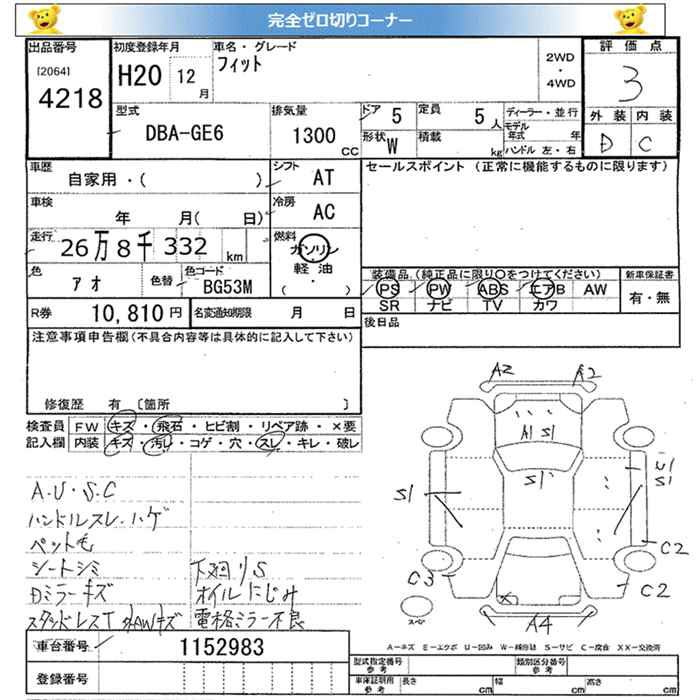 完全ゼロ切りコーナー
出品番号
[2064]
4218
初度登録年月
H20 12 月
車名・グレード
フィット
2WD
・
4WD
評価点
3
型式
DBA-GE6
排気量
1300 CC
ドア 5
定員 5 人
形状 W
積載 kg
ディーラー・並行
モデル年式 年
ハンドル 左・右
外装 内装
D C
車歴
自家用・( )
シフト AT
車検
年 月( 日)
冷房 AC
走行
26万8千332 km
燃料
ガソリン
軽油
( ・ )
色
アオ
色替
色コード
BG53M
R券 10,810 円
名変通知期限 月 日
セールスポイント (正常に機能するものに限ります)
装備品(純正品に限り○をつけてください)
PS PW ABS エアB AW
SR ナビ TV カワ
新車保証書
有・無
後日品
注意事項申告欄(不具合内容等は具体的に記入して下さい)
修復歴 有 〔箇所 〕
検査員 FW キズ・飛石・ヒビ割・リペア跡・×要
記入欄 内装 キズ・汚れ・コゲ・穴・スレ・キレ・破レ
A.U.S.C
ハンドルスレ.ハゲ
ペット毛
シートシミ
Dミラーキズ
スタッドレスT 外AWキズ
下廻りS
オイルにじみ
電格ミラー不良
車台番号 1152983
登録番号
A2 A2
A1 S1
S1
S1
U1
S1
C2
C3
C2
A4
スペア
A=キズ E=エクボ U=凹み W=補修跡 S=サビ C=腐食 XX=交換済
型式指定番号
参考
類別区分番号
参考
車庫証明用
参考
長さ cm 幅 cm 高さ cm